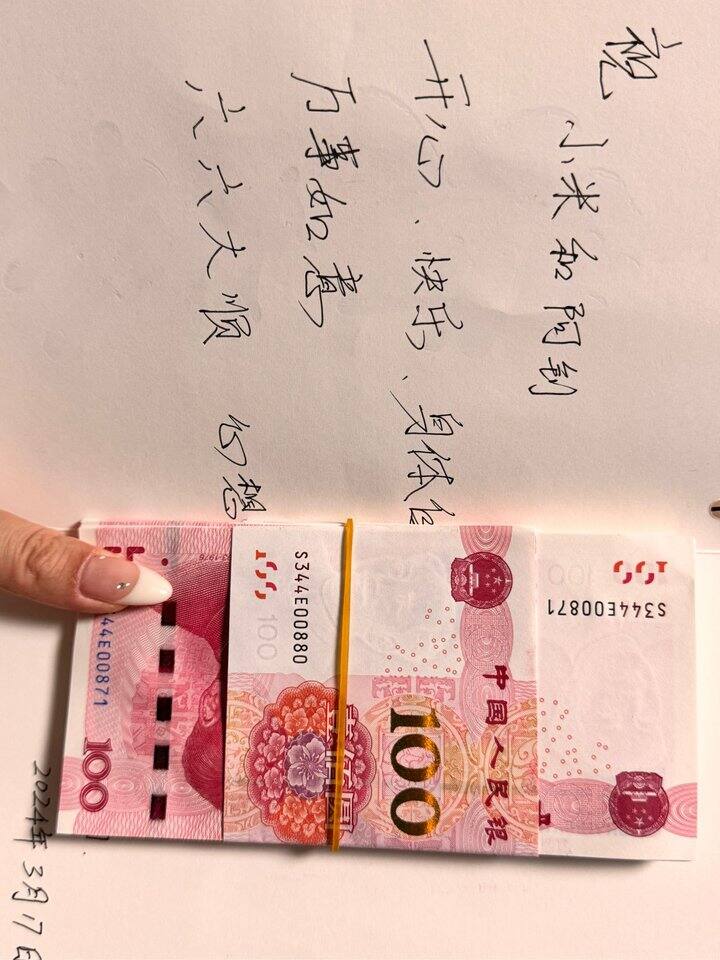 祝
小米和阿
开心、快乐、身体
万事如意
六六大顺 心想
S344E00880
100
中国人民银
100
S344E00871
100
44E00871
100
2024年3月17日